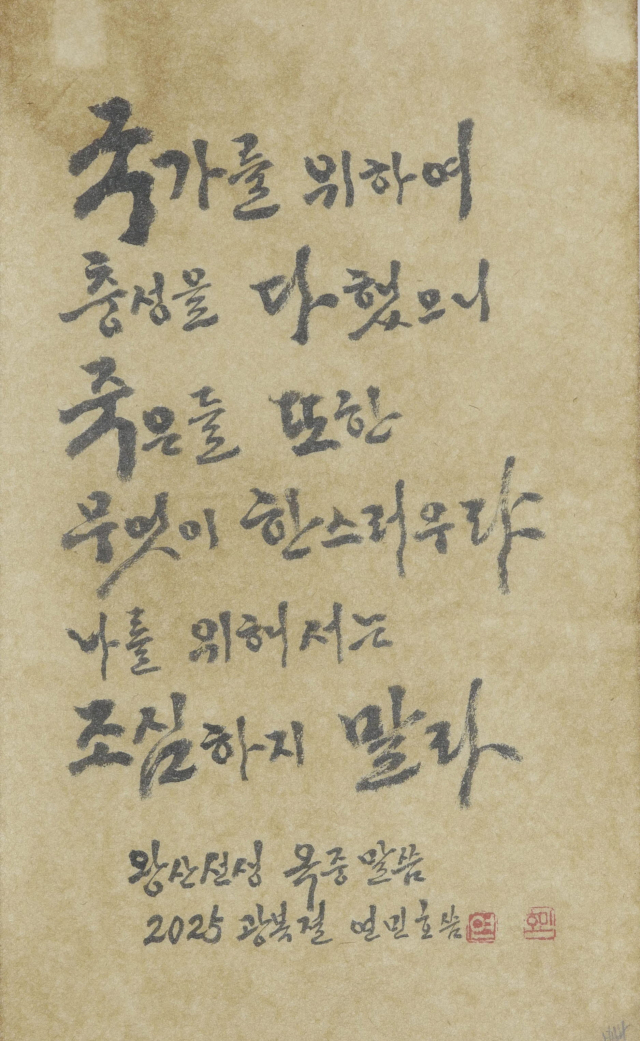 국가를 위하여
충성을 다했으니
죽은들 또한
무엇이 한스러우랴
나를 위해서는
조심하지 말라
왕산선생 옥중말씀
2025 광복절 연민호씀 연